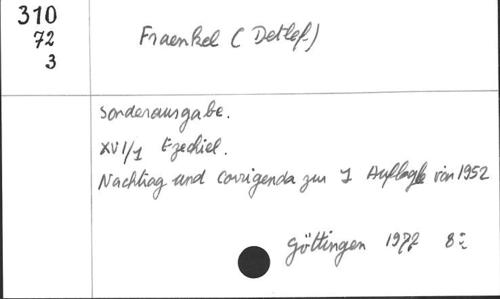 310
72
3
Fraenkel (Detlef)
Sonderausgabe.
XVI/1 Ezechiel.
Nachtrag und Corrigenda zur 1 Auflage von 1952
Göttingen 1977 8º